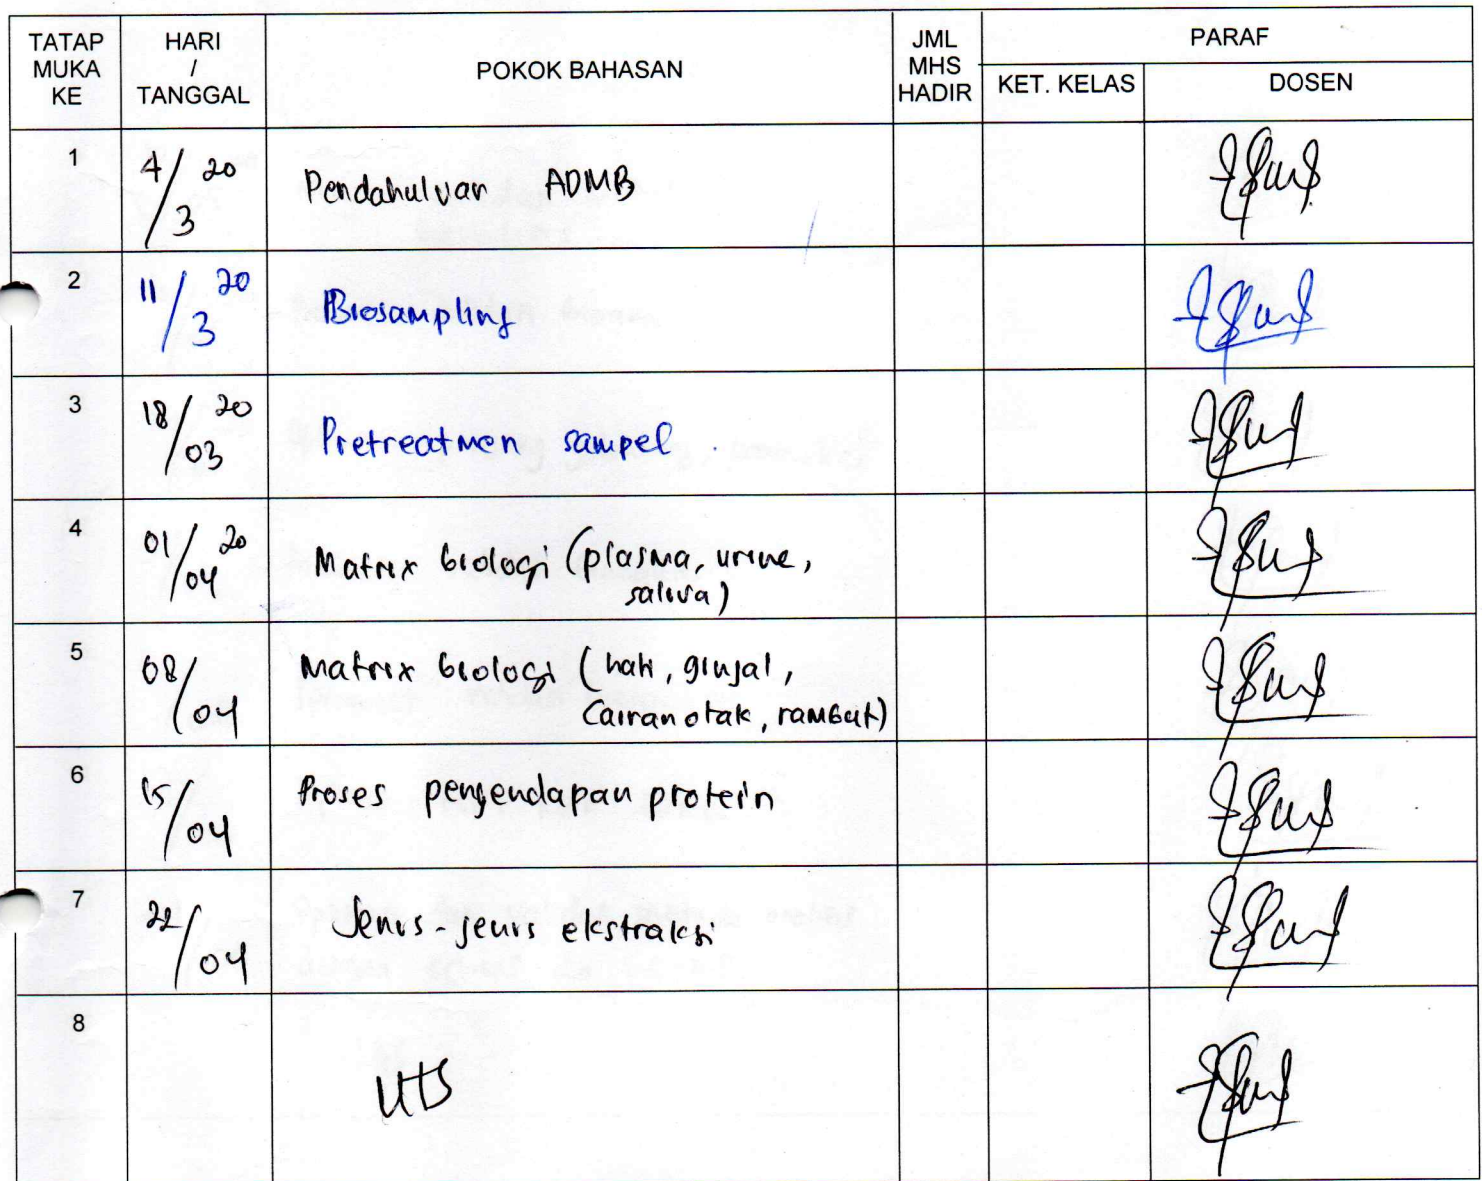 TATAP MUKA KE HARI / TANGGAL POKOK BAHASAN JML MHS HADIR PARAF
KET. KELAS DOSEN
1 4/3 20 Pendahuluan ADMB
2 11/3 20 Biosampling
3 18/03 20 Pretreatmen sampel
4 01/04 20 Matrix biologi (plasma, urine,
saliva)
5 08/04 Matrix biologi (hati, ginjal,
Cairan otak, rambut)
6 15/04 Proses pengendapan protein
7 22/04 Jenis-jenis ekstraksi
8 UTS